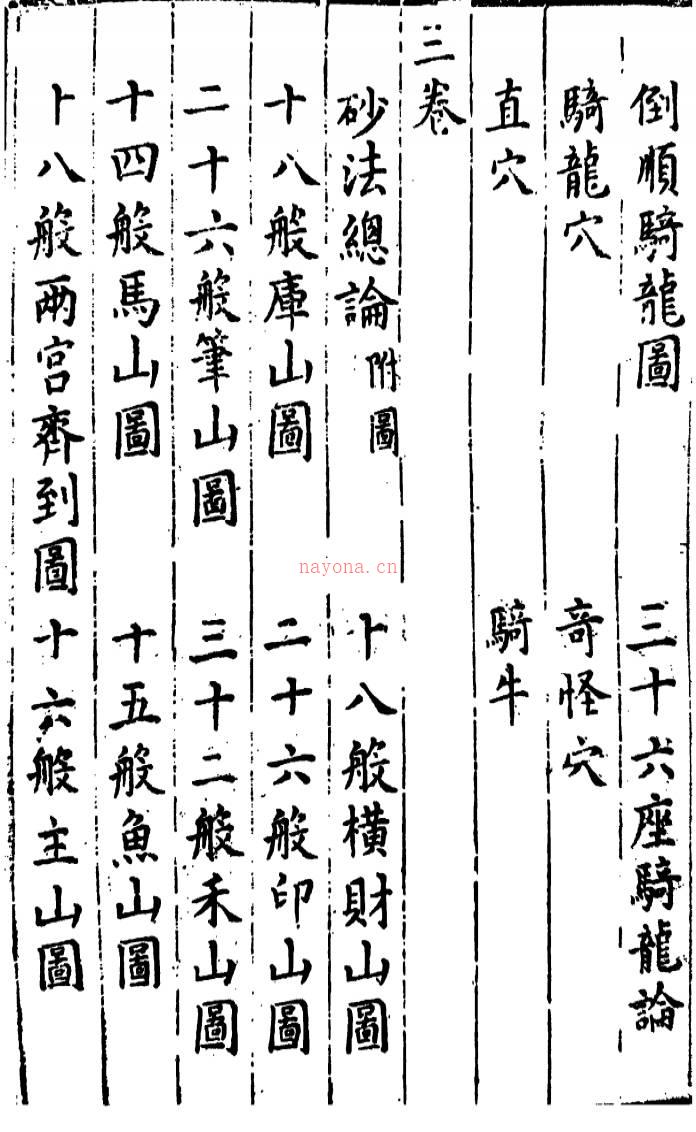 倒順騎龍圖 三十六座騎龍論
騎龍穴 竒怪穴
直穴 騎牛
三卷
砂法總論 附圖 十八般橫財山圖
十八般庫山圖 二十六般印山圖
二十六般筆山圖 三十二般禾山圖
十四般馬山圖 十五般魚山圖
十八般兩宮齊到圖 十六般主山圖
nayona.cn